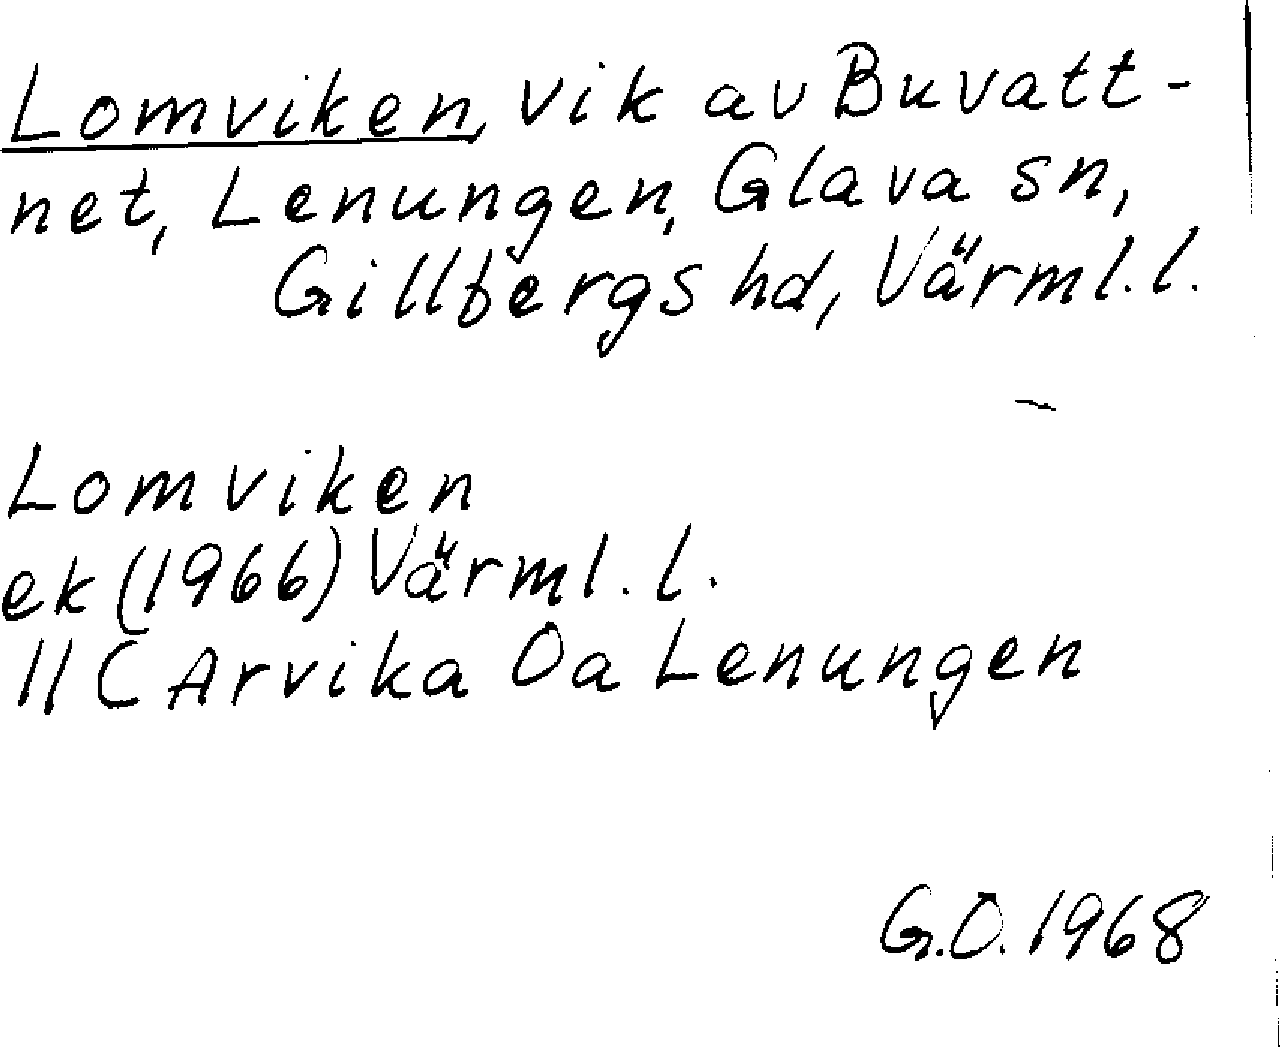 Lomviken, vik av Buvatt-
net, Lenungen, Glava sn,
Gillbergs hd, Värml. l.
Lomviken
ek (1966) Värml. l.
11 C Arvika Oa Lenungen
G.O. 1968